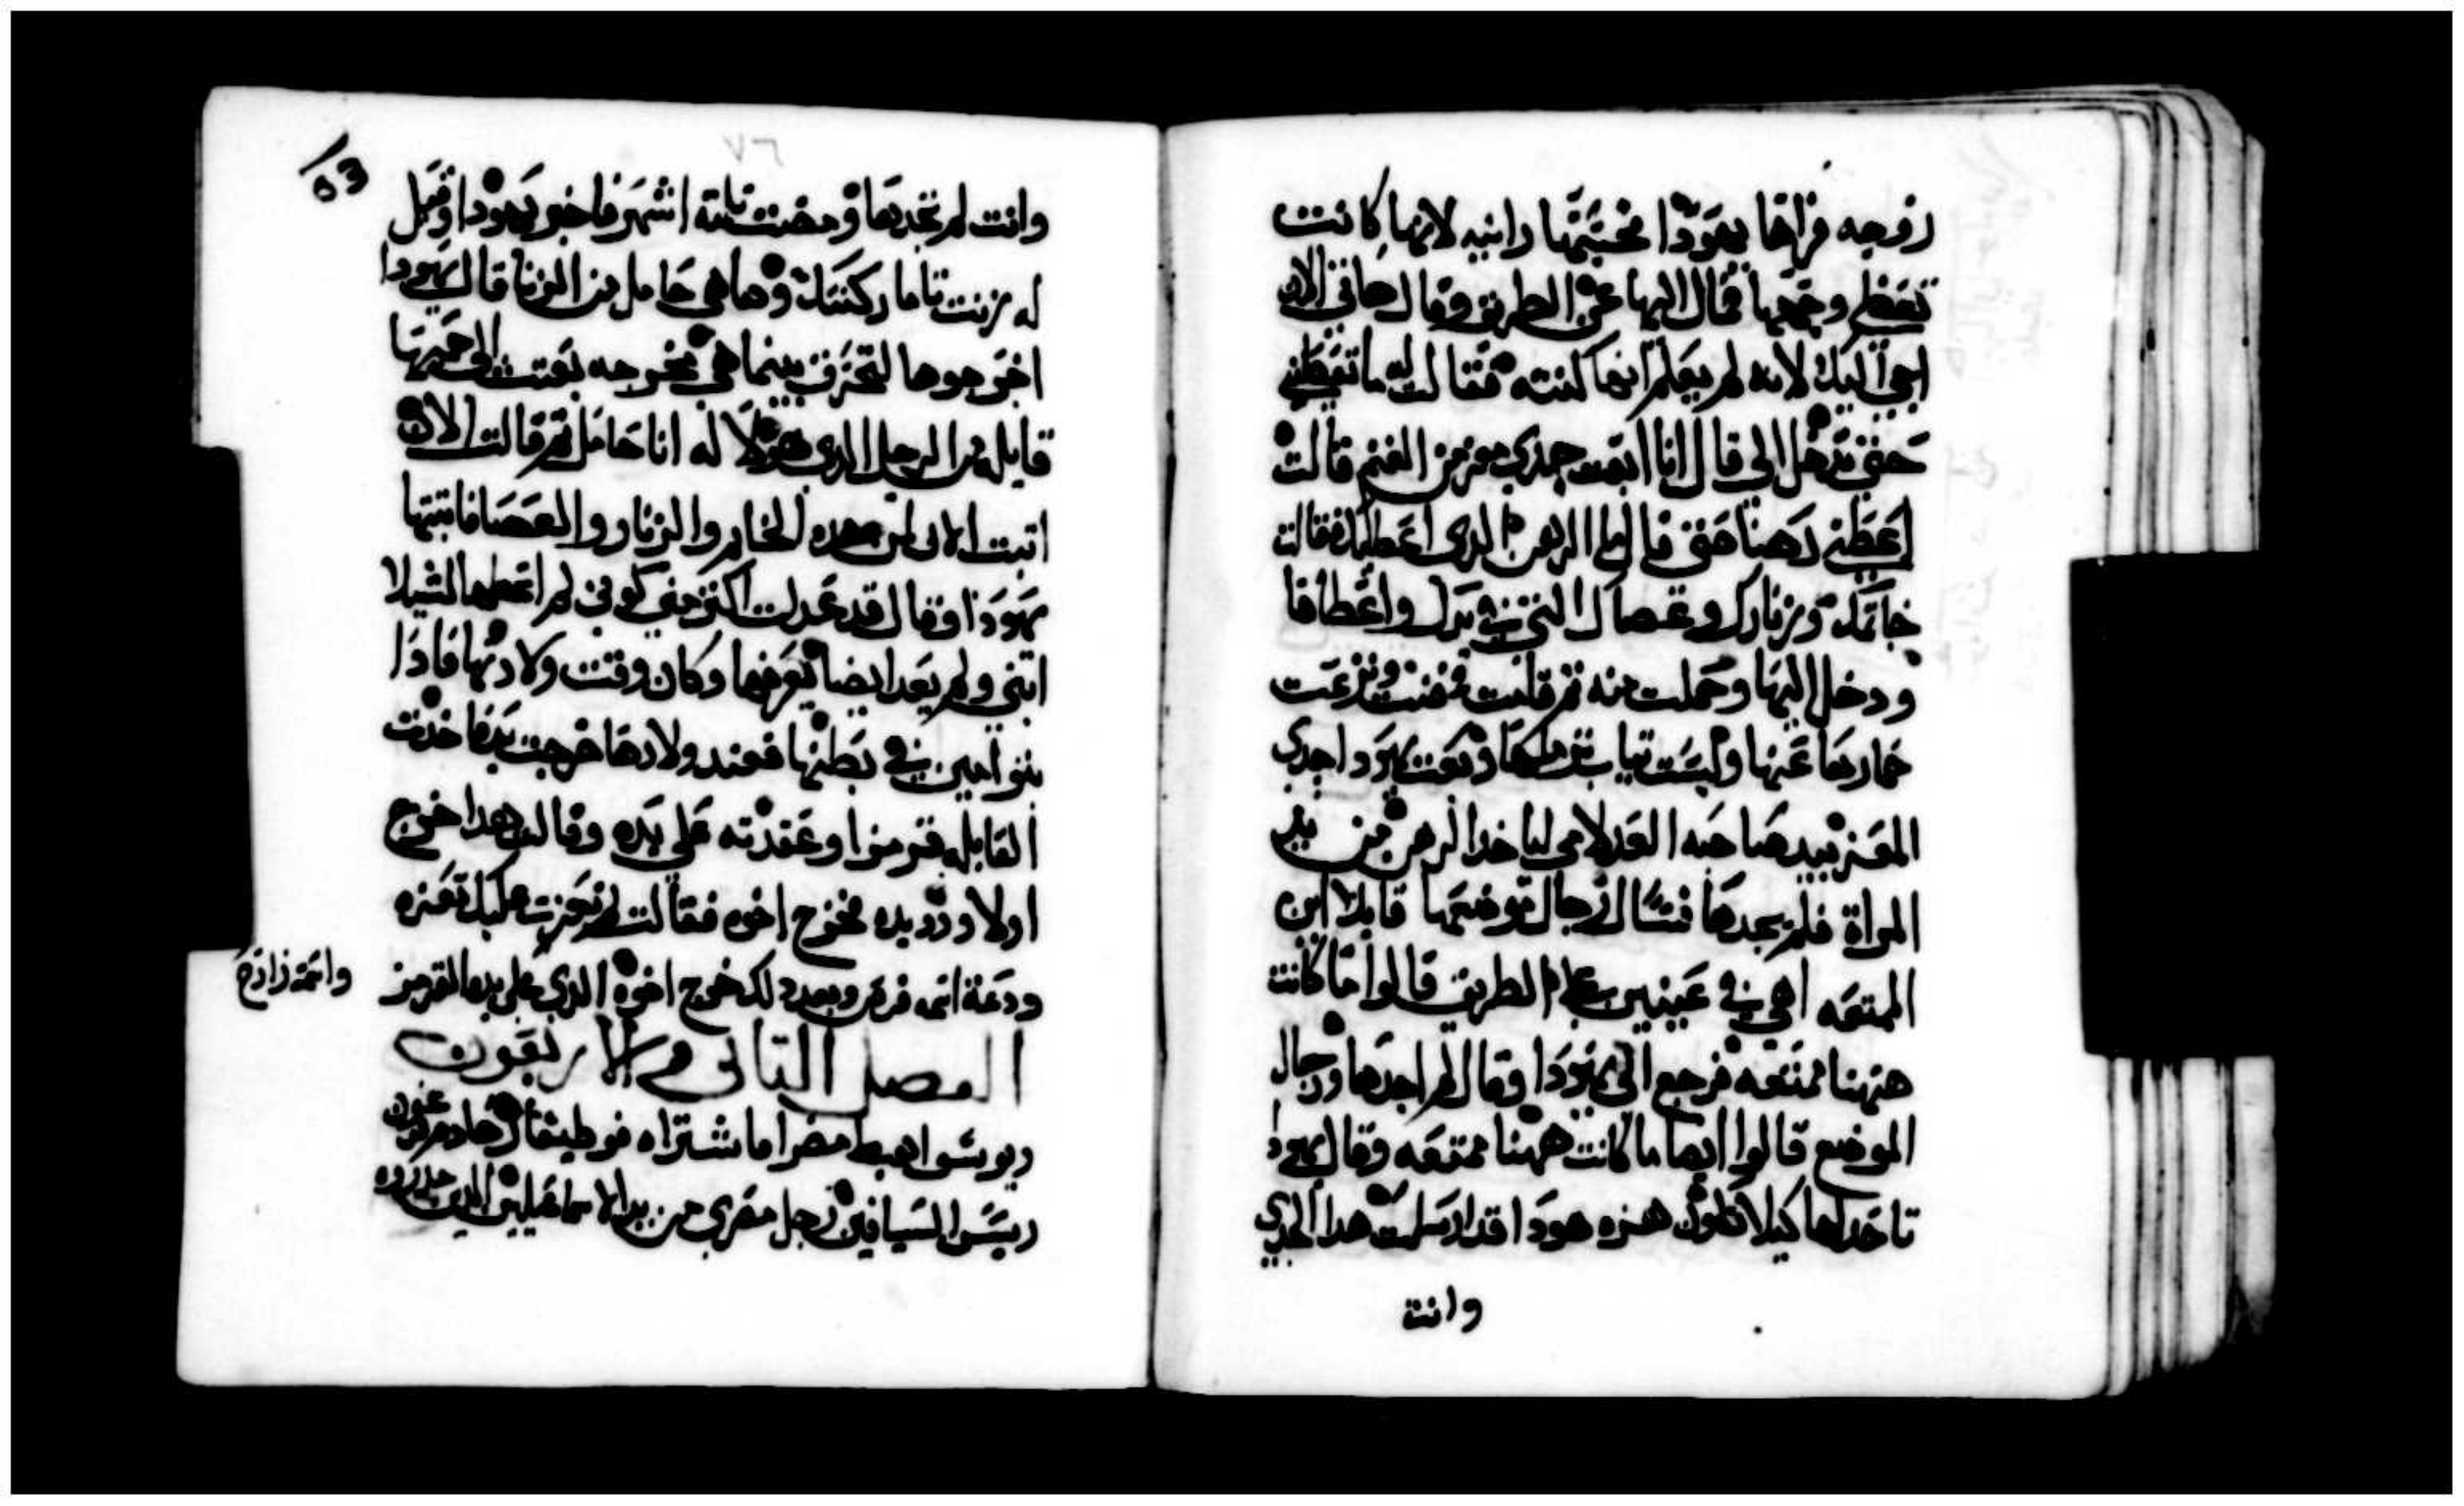 زوجه فراها يهودا فحسبها زانيه لانها كانت
تغطي وجهها فمال اليها عن الطريق وقال هاتي الان
اجي اليك لانه لم يعلم انها كنته فقالت له ما تعطني
حتي تدخل الي قال انا ابعت جدي معز من الغنم قالت
اعطني رهنا حتي قال لها ما الرهن الدي اعطيك فقالت
خاتمك وزنارك وعصاك التي في يدك واعطاها
ودخل اليها وحملت منه تم قامت فمضت ونزعت
خمارها عنها ولبست تياب ترملها وبعت يهودا جدي
المعز بيد صاحبه العدلامي لياخد الرهن من يد
المراة فلم يجدها فسال رجال موضعها قايلا اين
المتعه اهي في عينين علي الطريق قالوا ما كانت
ههنا ممتعه فرجع الي يهودا وقال لم اجدها ورجال
الموضع قالوا ايضا ما كانت ههنا ممتعه وقال يهودا
تاخد لها كيلا نكون هزه هودا قد ارسلت هدا الجدي
وانت
53
وانت لم تجدها ومضت تلته اشهر فاخبر يهودا وقيل
له زنت تامار كنتك وها هي حامل من الزنا قال يهودا
اخرجوها لتحرق بينما هي مخرجه بعتت الي حميها
قايله من الرجل الدي هولا له انا حامل تم قالت الان
اتبت الان لمن هده الخاتم والزنار والعصا فاتبتها
يهودا وقال قد عدلت اكتر مني كوني لم اعطها لشيلا
ابني ولم يعد ايضا يعرفها وكان وقت ولادتها فادا
بتوامين في بطنها فعند ولادها خرجت يد فاخدت
القابله قرمزا وعقدته علي يده وقالت هدا خرج
اولا ورد يده فخرج اخوه فقالت لم تعزت عليك تغزه
ودعت اسمه فرص وبعد دلك خرج اخوه الدي علي يده القرمز
واسمه زارح
الفصل التاني والاربعون
ويوسف اهبط مصر اما شتراه فوطيفار خادم فرعون
رييس السيافين رجل مصري من يد الاسماعيليين الدين حدروه